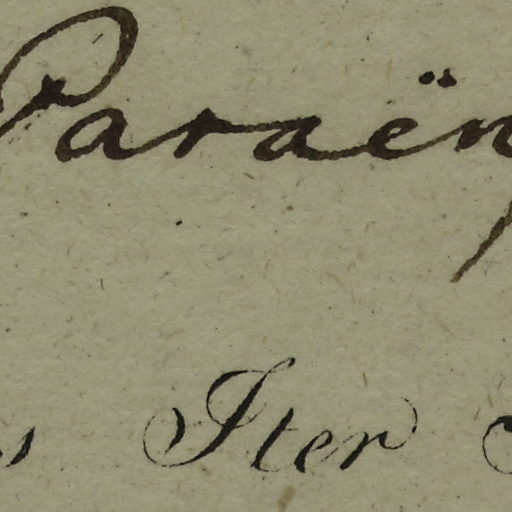 Paraën
s Iter